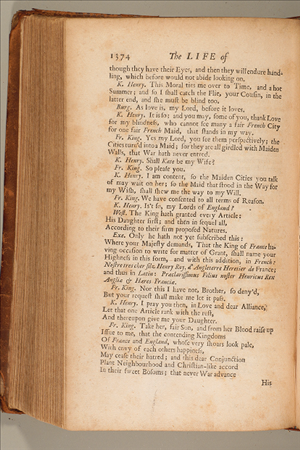 1374 The LIFE of
though they have their Eyes, and then they will endure hand-
ling, which before would not abide looking on.
K. Henry. This Moral ties me over to Time, and a hot
Summer; and so I shall catch the Flie, your Cousin, in the
latter end, and she must be blind too.
Burg. As love is, my Lord, before it loves.
K. Henry. It is so: and you may, some of you, thank Love
for my blindness, who cannot see many a fair French City
for one fair French Maid, that stands in my way.
Fr. King. Yes my Lord, you see them perspectively; the
Cities turn'd into a Maid; for they are all girdled with Maiden
Walls, that War hath never entred.
K. Henry. Shall Kate be my Wife?
Fr. King. So please you.
K. Henry. I am content, so the Maiden Cities you talk
of may wait on her; so the Maid that stood in the Way for
my Wish, shall shew me the way to my Will.
Fr. King. We have consented to all terms of Reason.
K. Henry. Is't so, my Lords of England?
West. The King hath granted every Article:
His Daughter first; and then in sequel all,
According to their firm proposed Natures.
Exe. Only he hath not yet subscribed this:
Where your Majesty demands, That the King of France ha-
ving occasion to write for matter of Grant, shall name your
Highness in this form, and with this addition, in French:
Nostre tres cher filz Henry Roy d'Angleterre Heretier de France;
and thus in Latin: Præclarissimus Filius noster Henricus Rex
Angliæ & Hæres Franciæ.
Fr. King. Nor this I have not, Brother, so deny'd,
But your request shall make me let it pass.
K. Henry. I pray you then, in Love and dear Alliance,
Let that one Article rank with the rest,
And thereupon give me your Daughter.
Fr. King. Take her, fair Son, and from her Blood raise up
Issue to me, that the contending Kingdoms
Of France and England, whose very shoars look pale,
With envy of each others happiness,
May cease their hatred; and this dear Conjunction
Plant Neighbourhood and Christian-like accord
In their sweet Bosoms; that never War advance
His